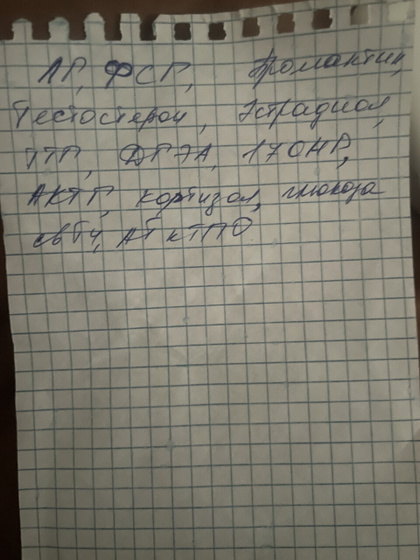 ЛГ, ФСГ, Пролактин,
Тестостерон, Эстрадиол,
ТТГ, ДГЭА, 17ОНР,
АКТГ, кортизол, глюкоза
свТ4, АТ кТПО